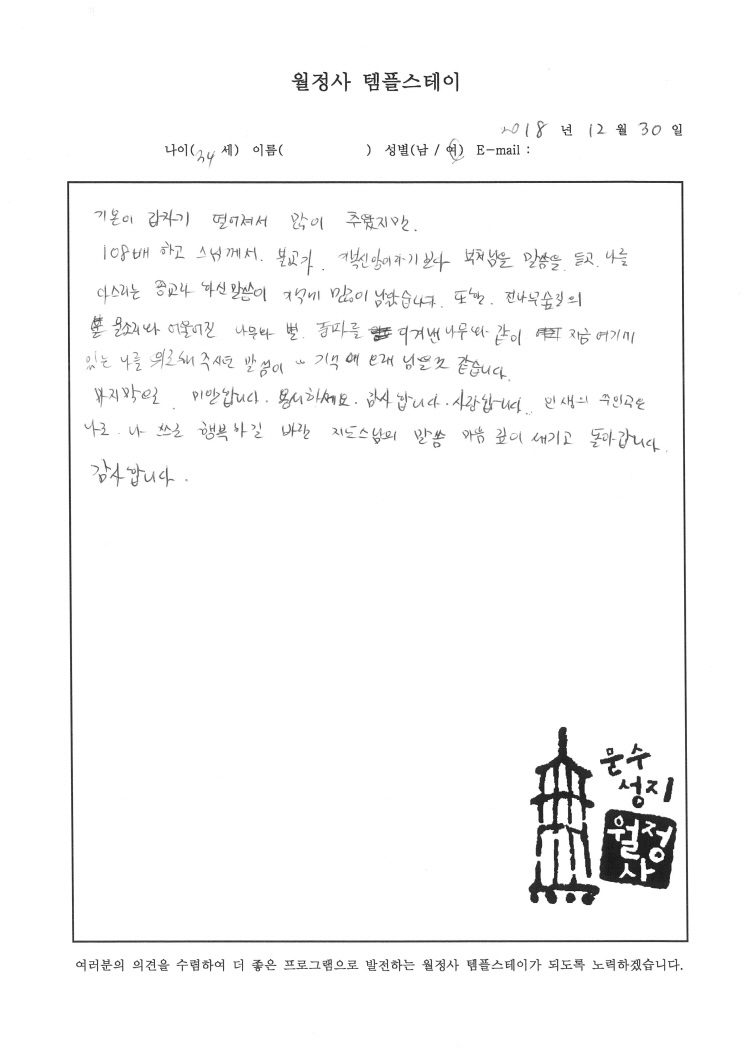 월정사 템플스테이
2018 년 12 월 30 일
나이(34 세) 이름( ) 성별(남 / 여) E-mail :
기온이 갑자기 떨어져서 많이 추웠지만.
108배 하고 스님께서. 불교가. 기복신앙이라기 보다 부처님을 말씀을 듣고. 나를
다스리는 종교라 하신 말씀이 기억에 많이 남았습니다. 또한. 전나무숲길의
물소리와 어울어진 나무와 별. 풍파를 이겨낸 나무와 같이 지금 여기에
있는 나를 위로해 주시던 말씀이 기억에 오래 남을것 같습니다.
마지막으로. 미안합니다. 용서하세요. 감사합니다. 사랑합니다. 인생의 주인공은
나로. 나 스스로 행복하길 바란 지도스님의 말씀 마음 깊이 새기고 돌아갑니다.
감사합니다.
문수
성지
월정
사
여러분의 의견을 수렴하여 더 좋은 프로그램으로 발전하는 월정사 템플스테이가 되도록 노력하겠습니다.